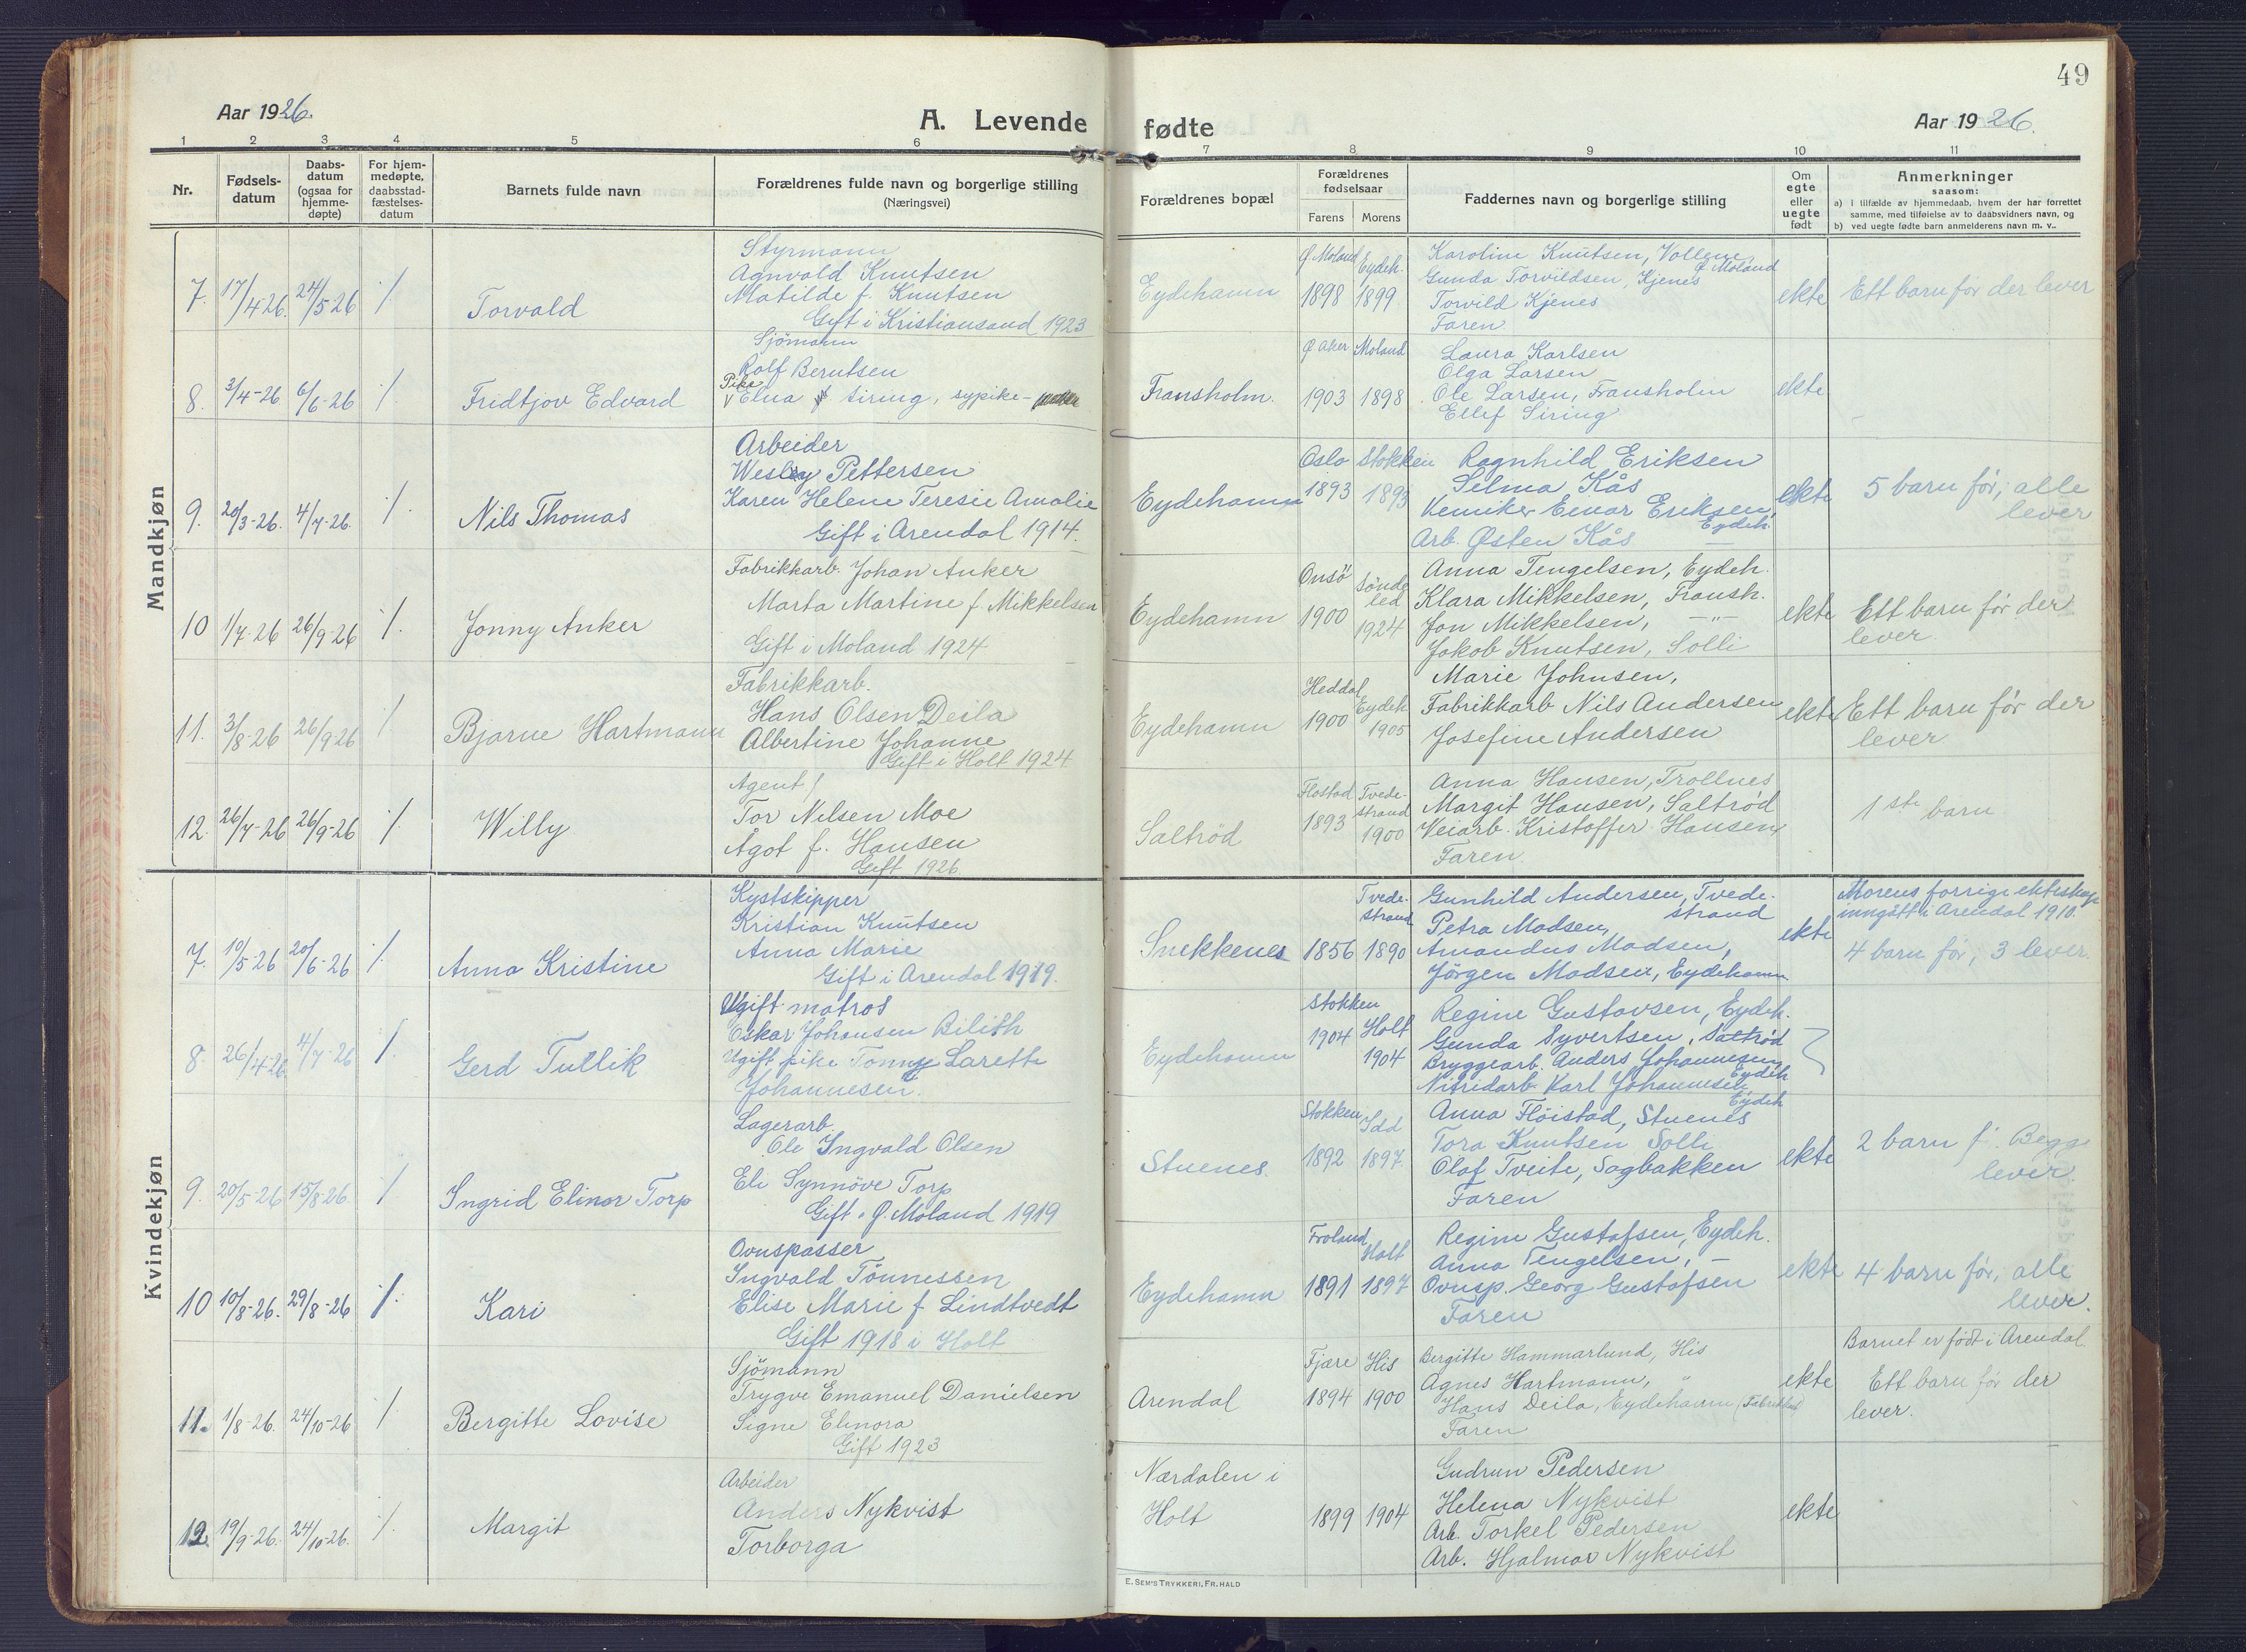 49
Aar 1926.
A. Levende
fødte
Aar 1926.
1 2 3 4 5 6 7 8 9 10 11
Nr.
Fødsels-
datum
Daabs-
datum
(ogsaa for
hjemme-
døpte)
For hjem-
medøpte,
daabsstad-
fæstelses-
datum
Barnets fulde navn
Forældrenes fulde navn og borgerlige stilling
(Næringsvei)
Forældrenes bopæl
Forældrenes
fødselsaar
Farens Morens
Faddernes navn og borgerlige stilling
Om
egte
eller
uegte
født
Anmerkninger
saasom:
a) i tilfælde av hjemmedaab, hvem der har forrettet
samme, med tilføielse av to daabsvidners navn, og
b) ved uegte fødte barn anmelderens navn m. v..
Mandkjøn
7. 17/4-26. 24/5-26 ·/. Torvald
Styrmann
Agnvald Knutsen
Matilde f. Knutsen
Gift i Kristiansand 1923
Eydehamn
Ø Moland 1898
Eydeh. 1899
Karoline Knutsen, Vollene,
Ø Moland
Gunda Torvildsen, Kjenes
Torvild Kjenes
Faren
ekte
Ett barn før der lever
8. 3/4-26 6/6-26 ·/. Fridtjov Edvard
Sjömann
Rolf Berntsen
Pike
Elna Siring, sypike
Fransholm.
Ø Aker 1903
Moland 1898
Laura Karlsen
Olga Larsen
Ole Larsen, Fransholm
Ellef Siring
ekte
9. 20/3-26. 4/7-26. ·/. Nils Thomas
Arbeider
Wesley Pettersen
Karen Helene Teresie Amalie
Gift i Arendal 1914.
Eydehamn
Oslo 1893
Stokken 1893
Ragnhild Eriksen
Selma Kås
Kemiker Einar Eriksen,
Eydeh.
Arb. Østen Kås —
ekte
5 barn før, alle
lever
10 1/7-26 26/9-26 ·/. Jonny Anker
Fabrikkarb. Johan Anker
Marta Martine f Mikkelsen
Gift i Moland 1924
Eydehamn
Onsö 1900
Sønde
led
1924
Anna Tengelsen, Eydeh.
Klara Mikkelsen, Fransh.
Jon Mikkelsen, —"—
Jakob Knutsen, Solli
ekte
Ett barn før der
lever.
11. 3/8-26 26/9-26 ·/. Bjarne Hartmann
Fabrikkarb.
Hans Olsen Deila
Albertine Johanne
Gift i Holt 1924.
Eydehamn
Heddal 1900
Eydeh 1905
Marie Johnsen,
Fabrikkarb Nils Andersen
Josefine Andersen
ekte
Ett barn før der
lever
12. 26/7-26 26/9-26 ·/. Willy
Agent
Tor Nilsen Moe
Ågot f. Hansen
Gift 1926
Saltrød
Flostad 1893
Tvede-
strand
1900
Anna Hansen, Trollnes
Margit Hansen, Saltrød
Veiarb. Kristoffer Hansen
Faren
1ste barn
Kvindekjøn
7. 10/5-26 20/6-26 ·/. Anna Kristine
Kystskipper
Kristian Knutsen
Anna Marie
Gift i Arendal 1919.
Snekkenes
1856
Tvede-
strand
1890
Gunhild Andersen, Tvede-
strand
Petra Madsen,
Amandus Madsen,
Jörgen Madsen, Eydehamn
ekte
Morens forrige ekteskap
inngått i Arendal 1910.
4 barn før, 3 lever.
8. 26/4-26 4/7-26 ·/. Gerd Tullik
Ugift matros
Oskar Johansen Bilith
Ugift pike Tonny Larette
Johannesen.
Eydehamn
Stokken 1904
Holt 1904
Regine Gustavsen, Eydeh.
Gunda Syvertsen, Saltrød
Bryggearb. Anders Johannesen,
Eydeh
Nitridarb. Karl Johannesen
Eydeh
9. 20/5-26 15/8-26. ·/. Ingrid Elinor Torp
Lagerarb.
Ole Ingvald Olsen
Eli Synnöve Torp
Gift i Ø. Moland 1919
Stuenes.
Stokken 1892
Idd 1897.
Anna Flöistad, Stuenes
Tora Knutsen Solli
Olaf Tveite, Sagbakken
Faren
ekte
2 barn f. Begge
lever.
10 10/8-26. 29/8-26 ·/. Kari
Ovnspasser
Ingvald Tönnessen
Elise Marie f Lindtvedt
Gift 1918 i Holt
Eydehamn
Froland 1891
Holt 1897
Regine Gustafsen, Eydeh.
Anna Tengelsen, —
Ovnsp. Georg Gustafsen
Faren
ekte
4 barn før, alle
lever.
11. 1/8-26. 24/10-26 ·/. Bergitte Lovise
Sjömann
Trygve Emanuel Danielsen
Signe Elinora
Gift 1923
Arendal
Fjære 1894
His 1900
Bergitte Hammarlund, His
Agnes Hartmann, "
Hans Deila, Eydehamn
Faren
ekte
Barnet er født i Arendal.
Ett barn før der
lever.
12. 19/9-26. 24/10-26. ·/. Margit
Arbeider
Anders Nykvist
Torborga
Nærdalen i
Holt
1899 1904
Gudrun Pedersen
Helena Nykvist
Arb. Torkel Pedersen
Arb. Hjalmar Nykvist
ekte
E. SEM'S TRYKKERI, FR. HALD